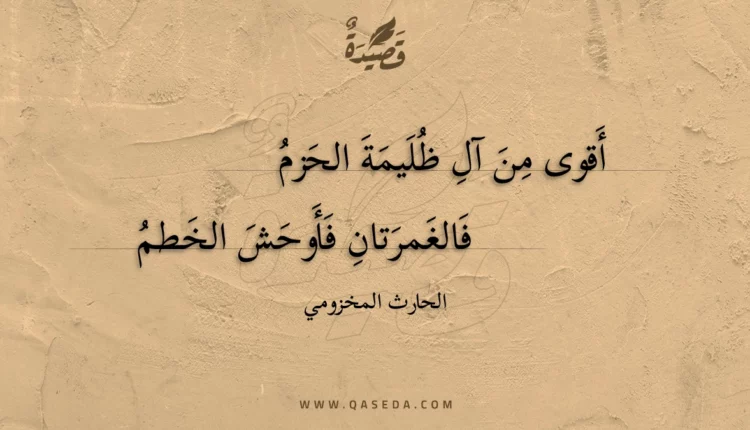 قَصِيدَةٌ
أَقوى مِنَ آلِ ظُلَيمَةَ الحَزمُ
فَالغَمرَتانِ فَأَوحَشَ الخَطمُ
الحارث المخزومي
WWW.QASEDA.COM